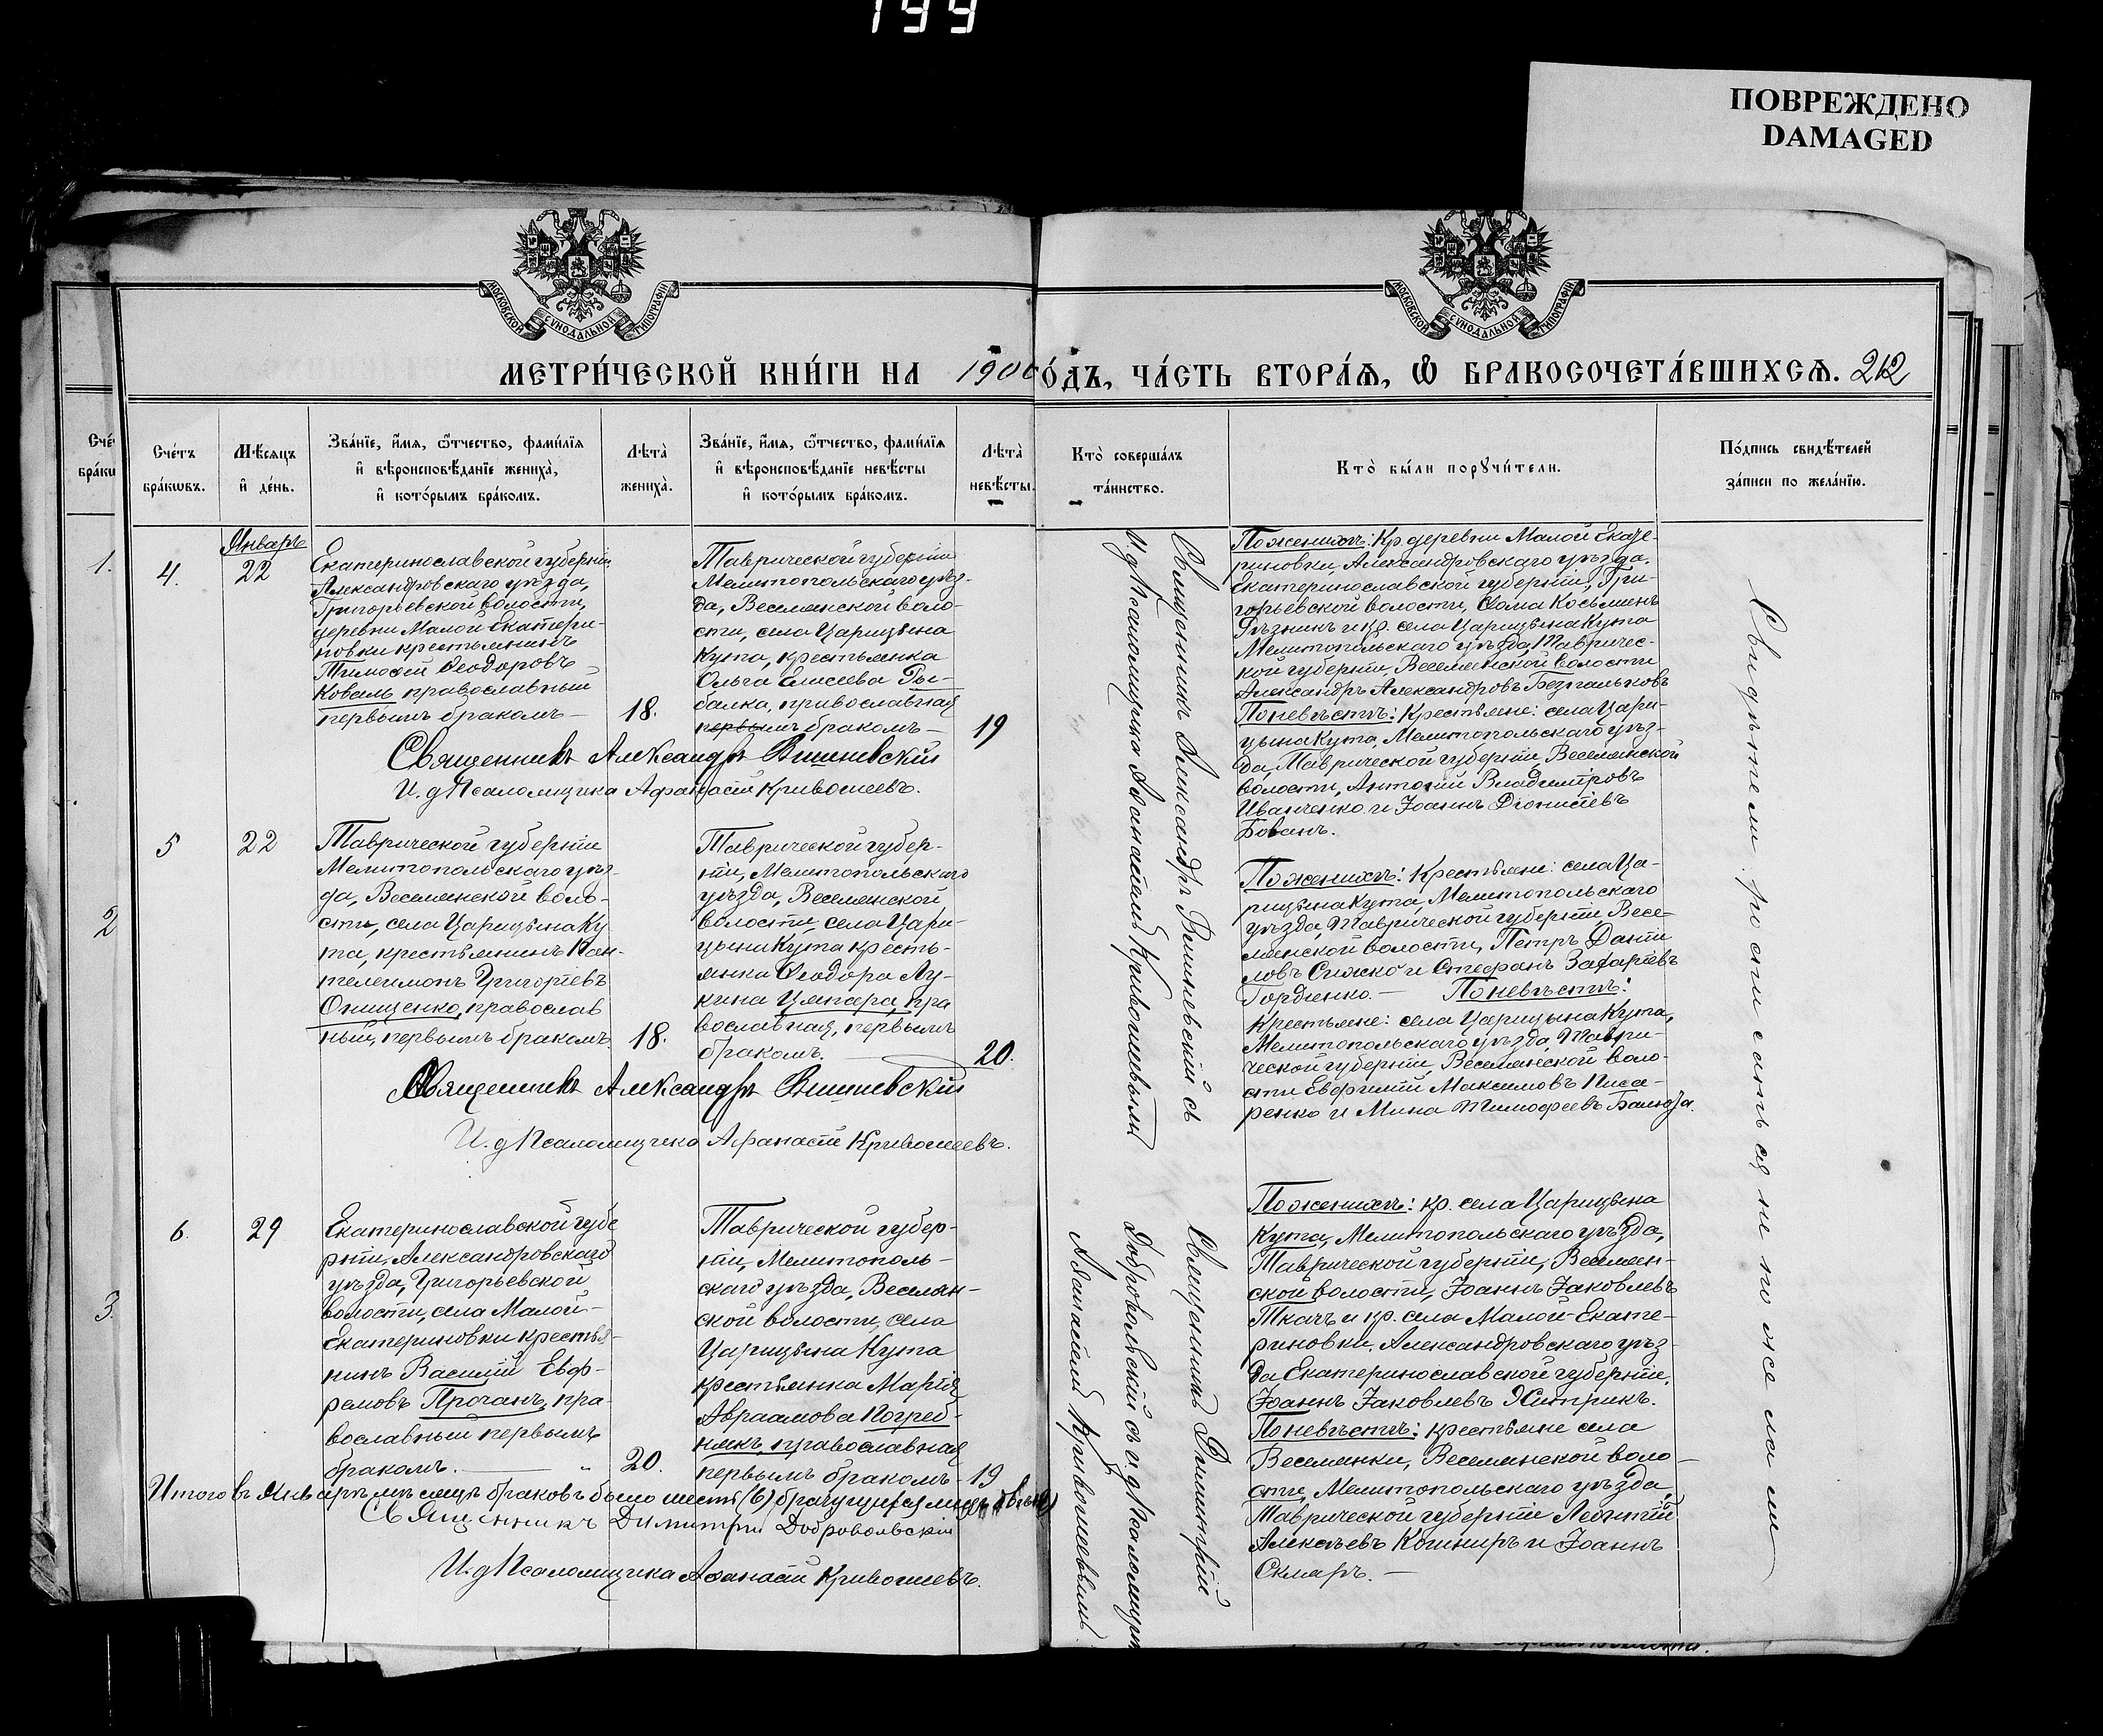 199
ПОВРЕЖДЕНО
DAMAGED
МОСКОВСКОЙ СѴНОДАЛЬНОЙ ТИПОГРАФІИ
МОСКОВСКОЙ СѴНОДАЛЬНОЙ ТИПОГРАФІИ
МЕТРИ́ЧЕСКОЙ КНИ́ГИ НА 1900 го́дъ, ЧА́СТЬ ВТОРА́Я, Ѿ БРАКОСОЧЕТА́ВШИХСѦ. 212
Сче́тъ
бра́кѡвъ.
Мѣ́сяцъ
и҆ де́нь.
Зва́нїе, и҆́мя, ѻ҆́тчество, фами́лїя
и҆ вѣроисповѣ́данїе жениха̀,
и҆ кото́рымъ бра́комъ.
Лѣта̀
жениха̀.
Зва́нїе, и҆́мя, ѻ҆́тчество, фами́лїя
и҆ вѣроисповѣ́данїе невѣ́сты
и҆ кото́рымъ бра́комъ.
Лѣта̀
невѣ́сты.
Кто̀ соверша́лъ
та́инство.
Кто̀ бы́ли порꙋчи́тели.
По́дпись свидѣ́телей
за́писи по жела́нїю.
1.
2
3.
4.
Январь
22
Екатеринославской губерніи
Александровскаго уѣзда,
Григорьевской волости,
деревни Малой Екатери-
новки крестьянинъ
Тимоѳей Ѳеодоровъ
Коваль православный
первымъ бракомъ —
18.
Таврической губерніи
Мелитопольскаго уѣз-
да, Веселянской воло-
сти, села Царицына
Кута, крестьянка
Ольга Елисеева Ры-
балка, православная
первымъ бракомъ —
19
Священникъ Александръ Вишневскій
И. д Псаломщика Афанасій Кривошеевъ.
Священникъ Александръ Вишневскій съ
и д Псаломщика Аѳанасіемъ Кривошеевымъ
По женихѣ: Кр. деревни Малой Екате-
риновки, Александровскаго уѣзда.
Екатеринославской губерніи, Гри-
горьевской волости, Ѳома Косьминъ
Рѣзникъ и кр. села Царицына Кута
Мелитопольскаго уѣзда, Тавричес-
кой губерніи, Веселянской волости
Александръ Александровъ Безпальковъ
По невѣстѣ: Крестьяне: села Цари-
цына Кута, Мелитопольскаго уѣз-
да, Таврической губерніи Веселянской
волости, Антоній Владиміровъ
Иванченко и Іоаннъ Діонисіевъ
Бованъ.
5
22
Таврической губерніи
Мелитопольскаго уѣз-
да, Веселянской воло-
сти, села Царицына Ку
та, крестьянинъ Пан-
телеимонъ Григоріевъ
Онищенко, православ
ный, первымъ бракомъ.
18.
Таврической губер-
ніи, Мелитопольскаго
уѣзда, Веселянской
волости, села Цари-
цына Кута кресть-
янка Ѳеодора Лу-
кина Цымара, пра
вославная, первымъ
бракомъ. —
20.
Священникъ Александръ Вишневскій
И. д Псаломщика Афанасій Кривошеевъ.
По женихѣ: Крестьяне: села Ца-
рицына Кута, Мелитопольскаго
уѣзда, Таврической губерніи Весе-
лянской волости, Петръ Даніи
ловъ Сижко и Стефанъ Захаріевъ
Гордіенко. — По невѣстѣ:
Крестьяне: села Царицына Кута,
Мелитопольскаго уѣзда, Таври-
ческой губерніи, Веселянской воло-
сти Евфимій Максимовъ Писа-
ренко и Мина Тимофеевъ
6.
29
Екатеринославской губе
рніи, Александровскаго
уѣзда, Григорьевской
волости, села Малой-
Екатериновки крестья-
нинъ Василій Евф-
ремовъ Прочанъ, пра-
вославный первымъ
бракомъ. —
20.
Таврической губер-
ніи, Мелитополь-
скаго уѣзда, Веселян-
ской волости, села
Царицына Кута
крестьянка Марія
Авраамова Погреб-
някъ, православная
первымъ бракомъ —
19
Священникъ Димитрій
Добровольскій съ и. д Псаломщика
Аѳанасіемъ Кривошеевымъ.
По женихѣ: кр. села Царицына
Кута, Мелитопольскаго уѣзда,
Таврической губерніи, Веселян-
ской волости, Іоаннъ Іаковлевъ
Ткачъ и кр. села Малой-Екате-
риновки, Александровскаго уѣз-
да, Екатеринославской губерніи,
Іоаннъ Іаковлевъ Хитрикъ.
По невѣстѣ: крестьяне села
Веселянки, Веселянской воло-
сти, Мелитопольскаго уѣзда,
Таврической губерніи Леонтій
Алексѣевъ Кошниръ и Іоаннъ
Скляръ. —
Итого въ Январѣ мѣсяцѣ браковъ было шесть (6)
Священникъ Димитрій Добровольскій
И. д Псаломщика Аѳанасій Кривошеевъ.
Свидѣтели росписаться не пожелали